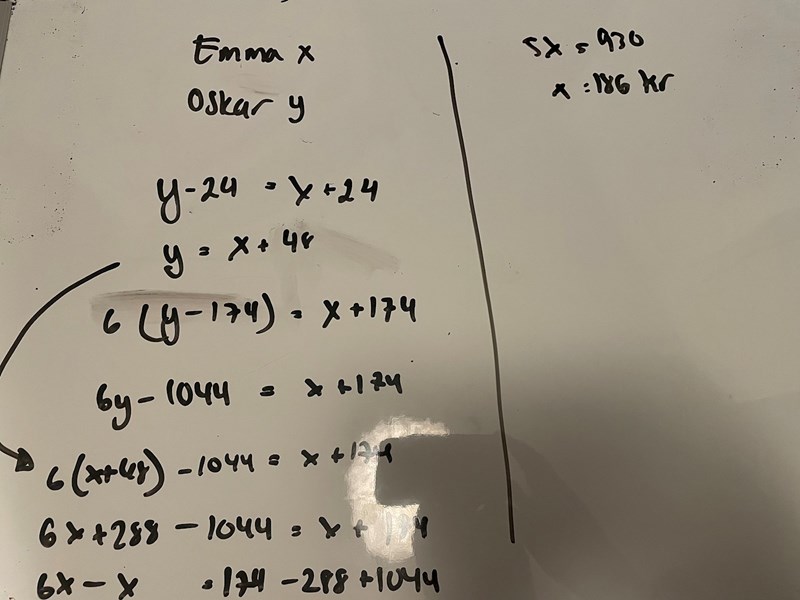 Emma x
Oskar y
y-24 = x+24
y = x+48
6(y-174) = x+174
6y-1044 = x+174
6(x+48)-1044 = x+174
6x+288-1044 = x+174
6x-x =174-288+1044
5x=930
x=186 kr